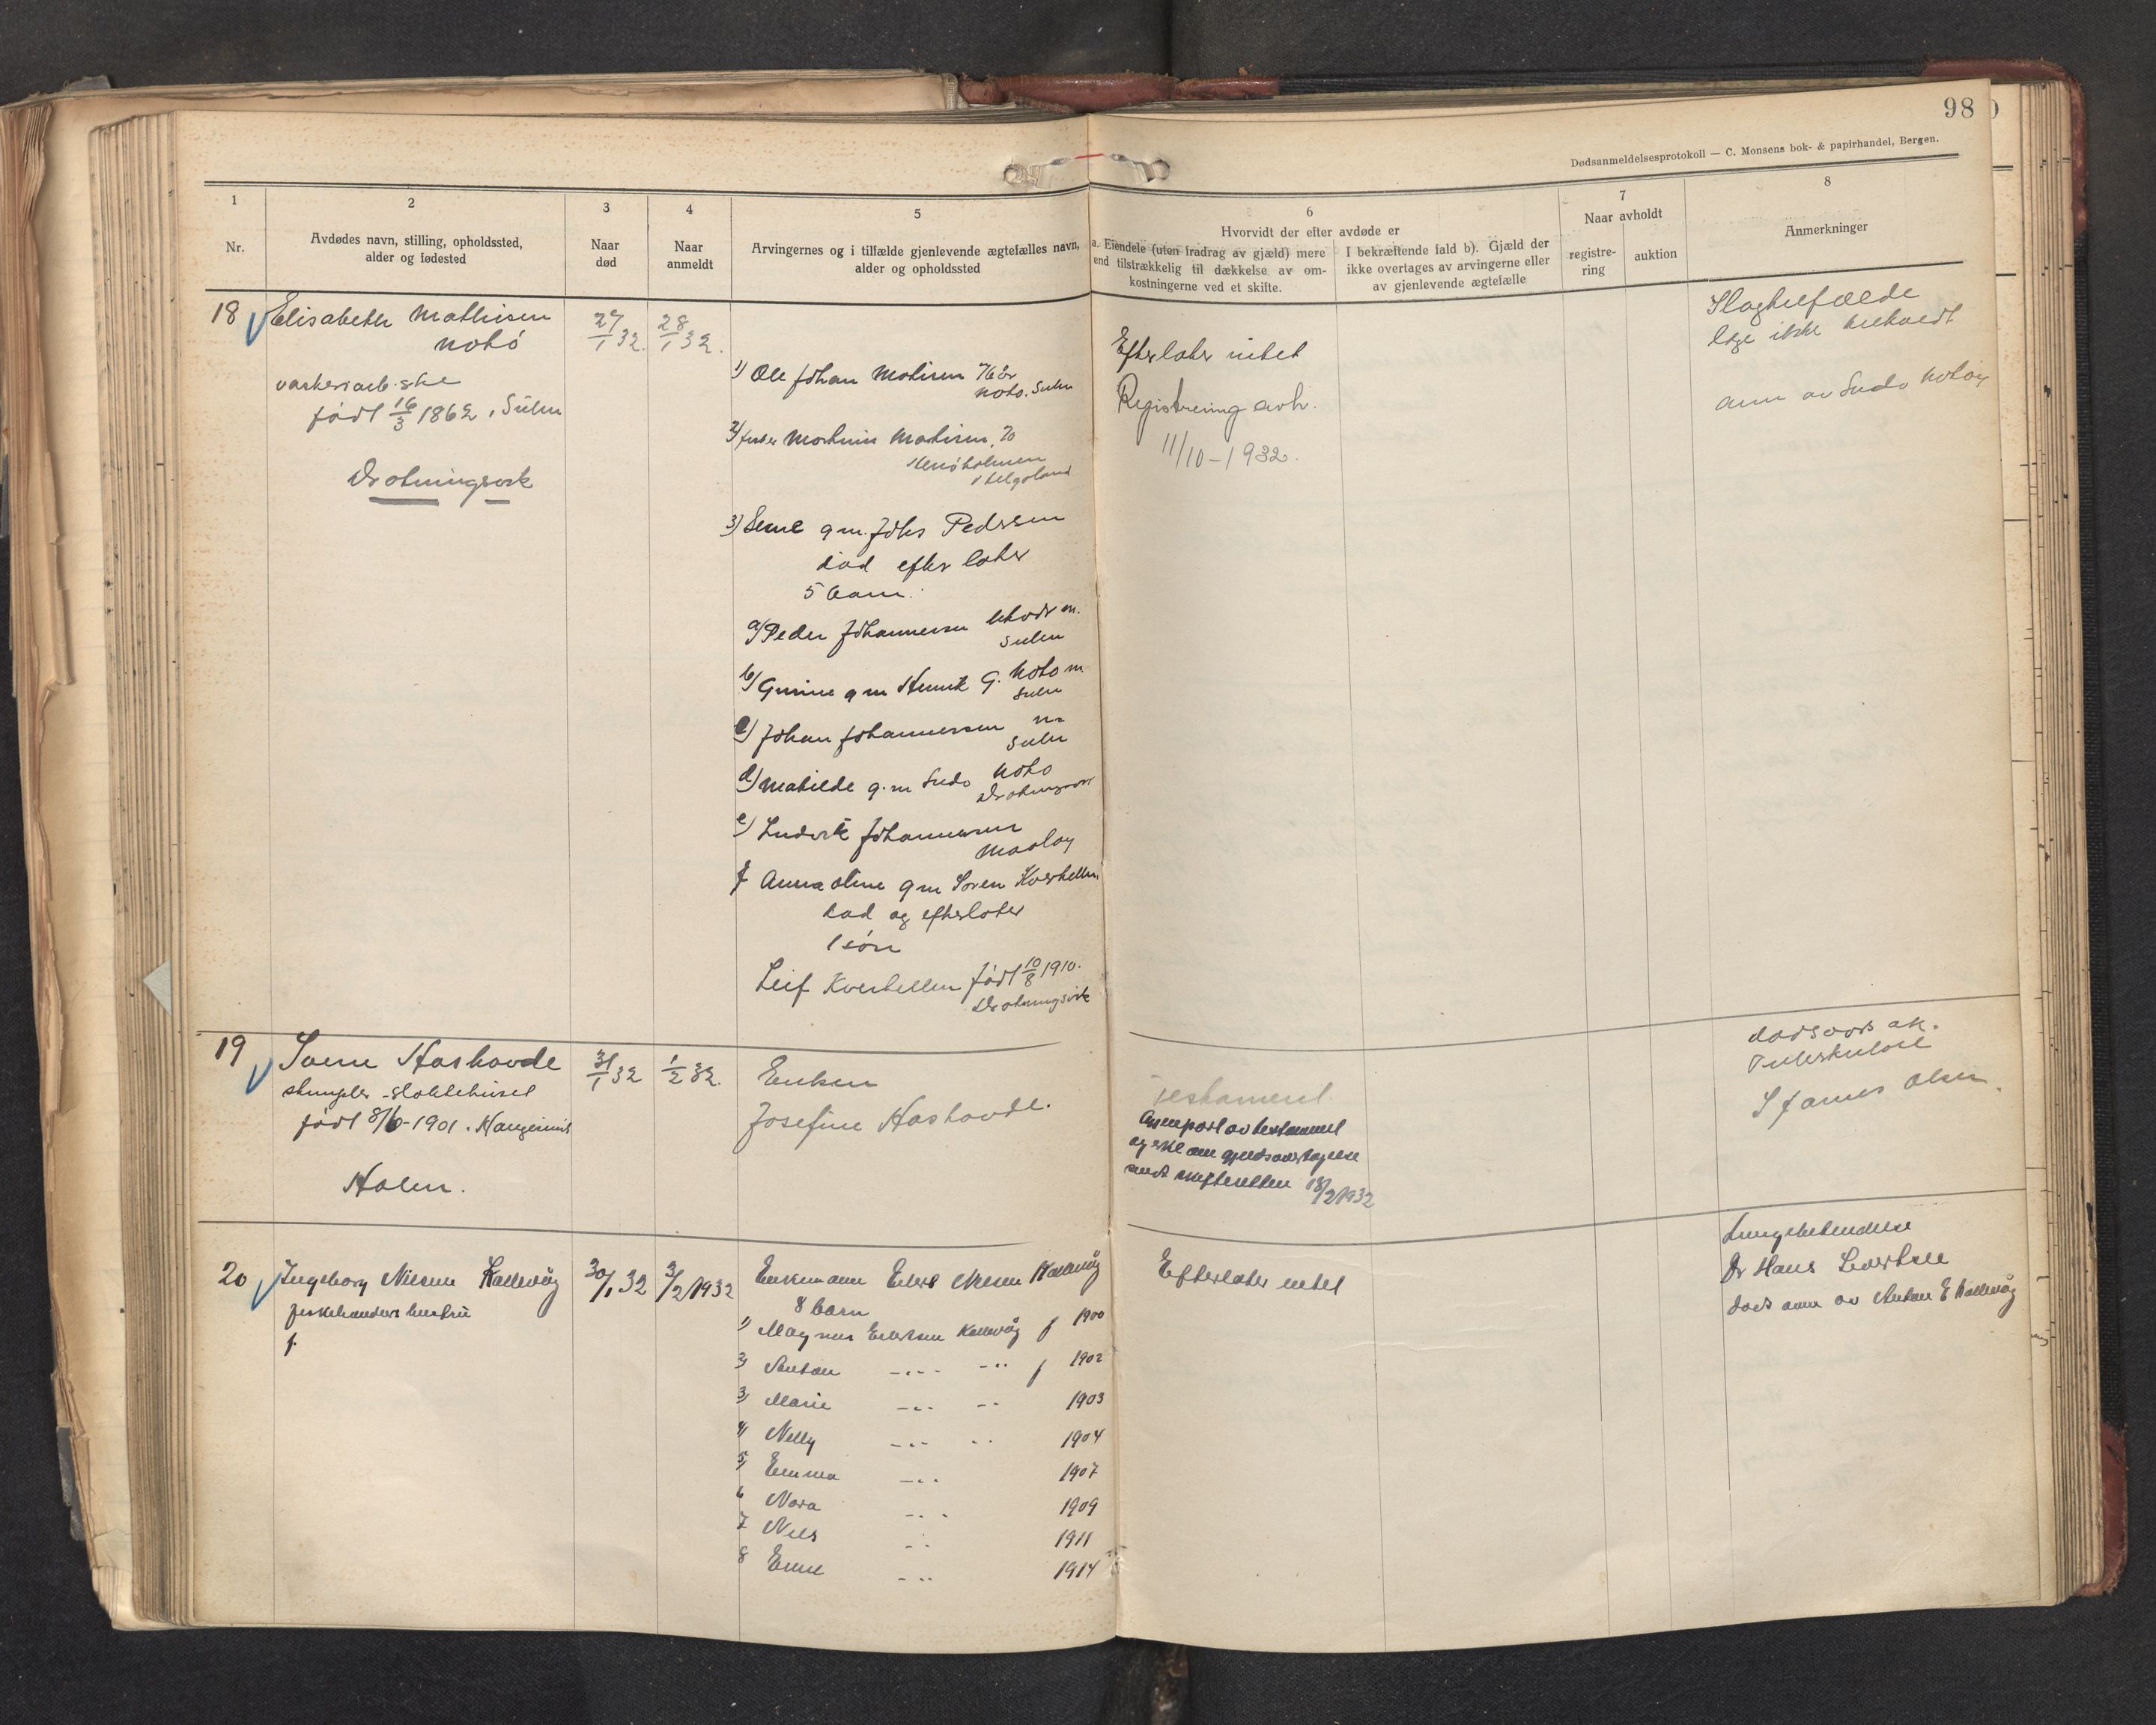 98
Dødsanmeldelsesprotokoll — C. Monsens bok- & papirhandel, Bergen.
1
Nr.
2
Avdødes navn, stilling, opholdssted,
alder og fødested
3
Naar
død
4
Naar
anmeldt
5
Arvingernes og i tilfælde gjenlevende ægtefælles navn,
alder og opholdssted
6
Hvorvidt der efter avdøde er
a. Eiendele (uten fradrag av gjæld) mere
end tilstrækkelig til dækkelse av om-
kostningerne ved et skifte.
I bekræftende fald b). Gjæld der
ikke overtages av arvingerne eller
av gjenlevende ægtefælle
7
Naar avholdt
registre-
ring
auktion
8
Anmerkninger
18
Elisabeth Mathisen
Notø
født 16/3 1862, Sulen
Drotningsvik
27/1 32.
28/1 32.
1) Ole Johan Matisen 76 år
Notø. Sulen
2) Matisen, 70
Helgoland
3) g m. Johs Pedersen
død efterlater
5 barn.
a) Peder Johannessen
Sulen
b) Gurine g m Henrik G. Notø
Sulen
c) Johan Johannessen
Sulen
d) Matilde g. m Ludv Notø
Drotningsvik
e) Ludvik Johannesen
Maaløy
f Anna Oline g m Søren Kverhellen
død og efterlater
1 søn
Leif Kverhellen født 10/8 1910.
Drotningsvik
Efterlater intet
Registrering avh.
11/10-1932.
Slagtilfælde
læge ikke
anm av Ludv Notøy
19
Hashovde
født 8/6-1901.
Holen.
31/1 32
1/2 32.
Enken
Josefine Hashovde.
Testament.
Gjenpart av testament
og erkl om gjeldsovertagelse
sendt skifteretten 18/2 1932
dødsårsak.
Tuberkulose
Olsen.
20
Ingeborg Nilsen Kallevåg
fiskehandlers hustru
f.
30/1 32
3/2 1932
Enkemann Eilert Nilsen Kallevåg
8 barn
1) Magnus Eilertsen Kallevåg f 1900
2) Anton -..- -.. f 1902
3) Marie -..- -.. 1903
4) Nelly -..- .. 1904
5) Emma -.. 1907
6 Nora -.. 1909
7 Nils -.. 1911
8 Einar -.. 1914
Efterlater intet
Lungebetendelse
Dr Hans
døds anm av Anton E Kallevåg